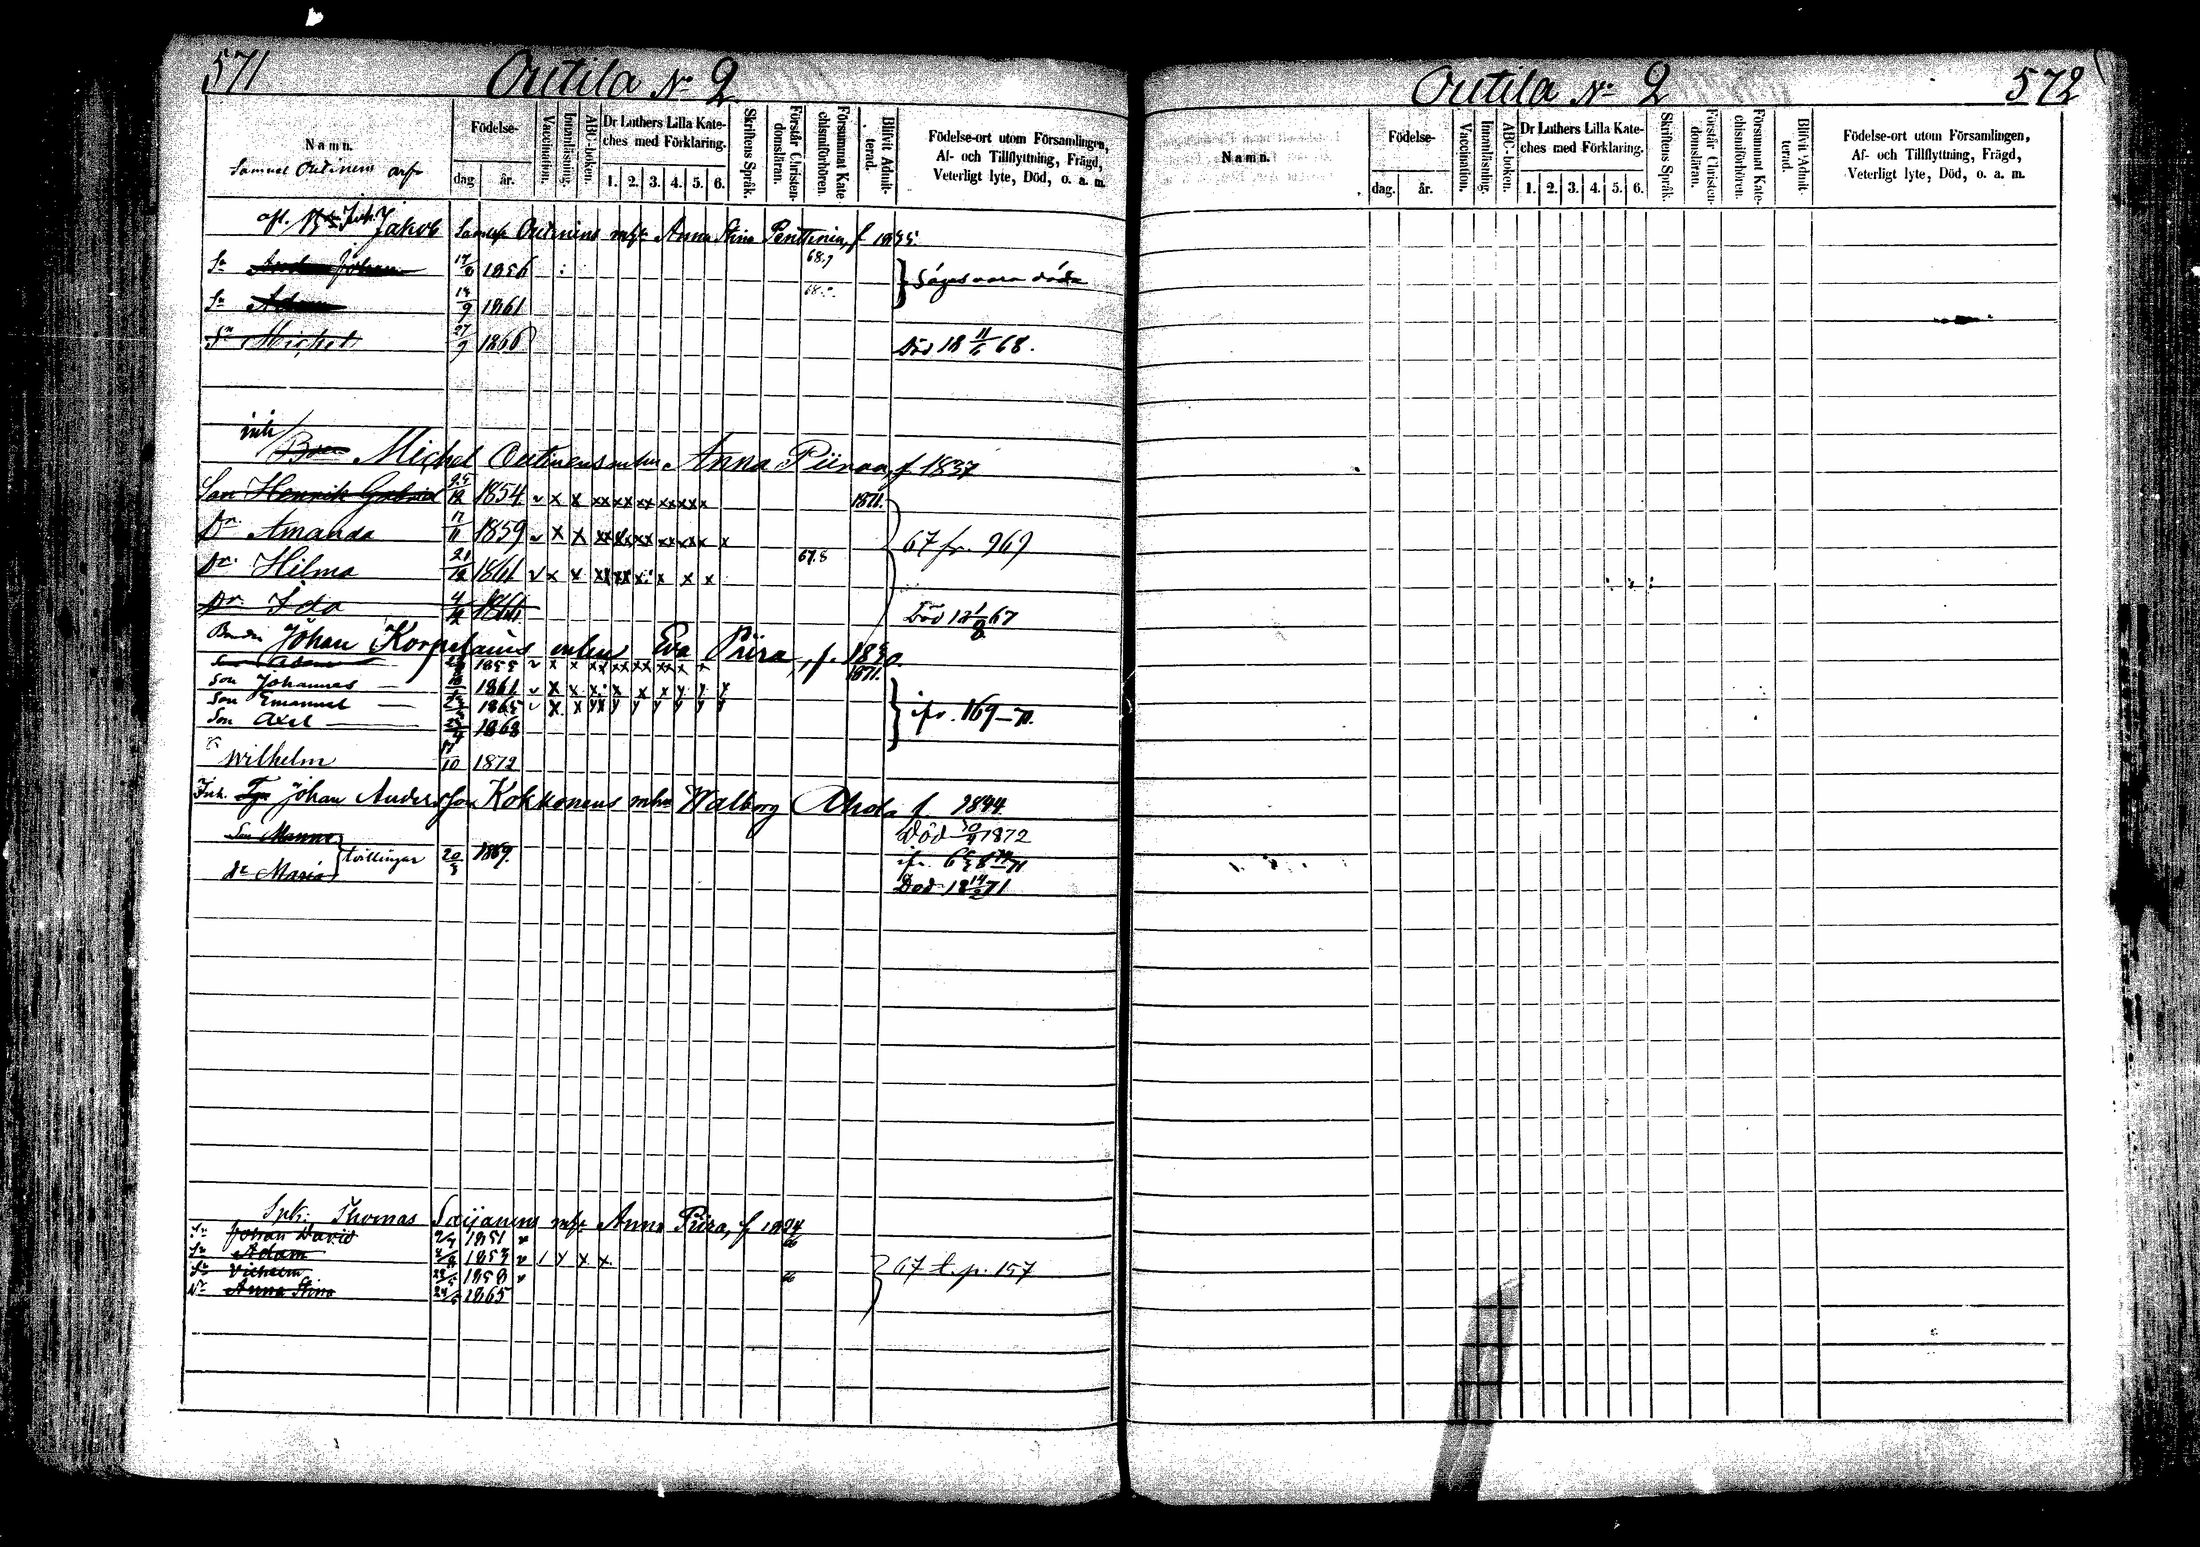 571
Outila No 2
Namn.
Samuel Outinens arf
Födelse-
dag
år.
Vaccination.
Innanläsning.
ABC-boken.
Dr Luthers Lilla Kate-
ches med Förklaring.
1. 2. 3. 4. 5. 6.
Skriftens Språk.
Förstår Christen-
domsläran.
Försummat Kate
chismiförhören.
Blifvit Admit-
terad.
Födelse-ort utom Församlingen,
Af- och Tillflyttning, Frägd,
Veterligt lyte, Död, o. a. m.
afl. Jakob Outinens Anna Stina Penttinen, f 1835
Sn Johan 1856 :
Sn Adam 13/9 1861
Säges vara döda
Sn Michel 27/9 1866 Död 18 11/6 68.
inh
Michel Outinens enkn Anna Piiraa, f 1837
Son Henrik Gabriel 1854 v x x xx xx xx xx xx x 1871.
Dr. Amanda 17/11 1859 v x x
67 fr. 969
Dr. Hilma 1861 v x x 67.8
Dr. Ida 1866 Död 18 1/8 67
Bonden Johan Korpelains enkn Eva Piira, f. 1830.
Son Adam 1855 v x x 1871.
Son Johannes — 1861 v x x
Son Emanuel — 1865 v x x
ifr. 169-70.
Son Axel — 1868
Wilhelm 1872
Inh. Johan Andersson Kokkonens enkn Walborg Ahola f 1844
Son Manne
tvillingar 20/3 1869.
Död 1872
dr Maria
Död 18 14/2 71
Inh: Thomas Saijanens Anna Piira, f 1824
Sn Johan David 1851 v 66
Sn Adam 1853 v 1 y x x.
Sn Vilhelm 1858 v 66
67 t. p. 157
Dr Anna Stina 1865
Outila No 2
572
Namn.
Födelse-
dag.
år.
Vaccination.
Innanläsning.
ABC-boken.
Dr Luthers Lilla Kate-
ches med Förklaring.
1. 2. 3. 4. 5. 6.
Skriftens Språk.
Förstår Christen-
domsläran.
Försummat Kate-
chismiförhören.
Blifvit Admit-
terad.
Födelse-ort utom Församlingen,
Af- och Tillflyttning, Frägd,
Veterligt lyte, Död, o. a. m.